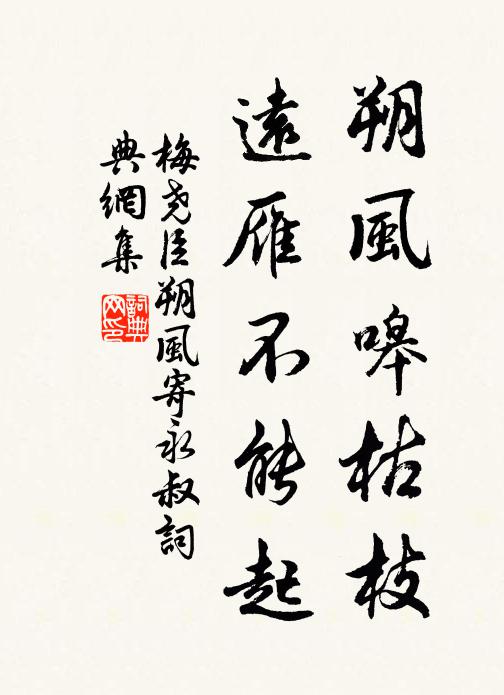 朔風嘷枯枝
遠雁不能起
梅尧臣朔風寄永叔詞
典網集
詞典網印